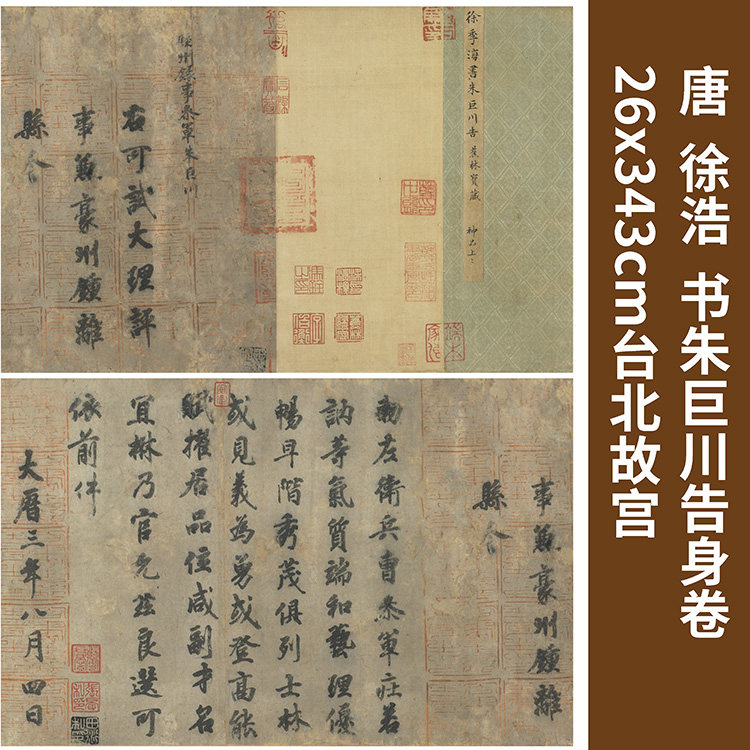 唐 徐浩 书朱巨川告身卷
26x343cm台北故宫
徐季海書朱巨川告 蕉林寶藏 神品上上
睦州錄事參軍朱巨川
右可試大理評
事兼豪州鍾離
縣令
事兼豪州鍾離
縣令
勅左衛兵曹參軍莊若
訥等氣質端和藝理優
暢早階秀茂俱列士林
或見義為勇或登高能
賦擢居品位咸副才名
宜楙乃官允茲良選可
依前件
大曆三年八月四日